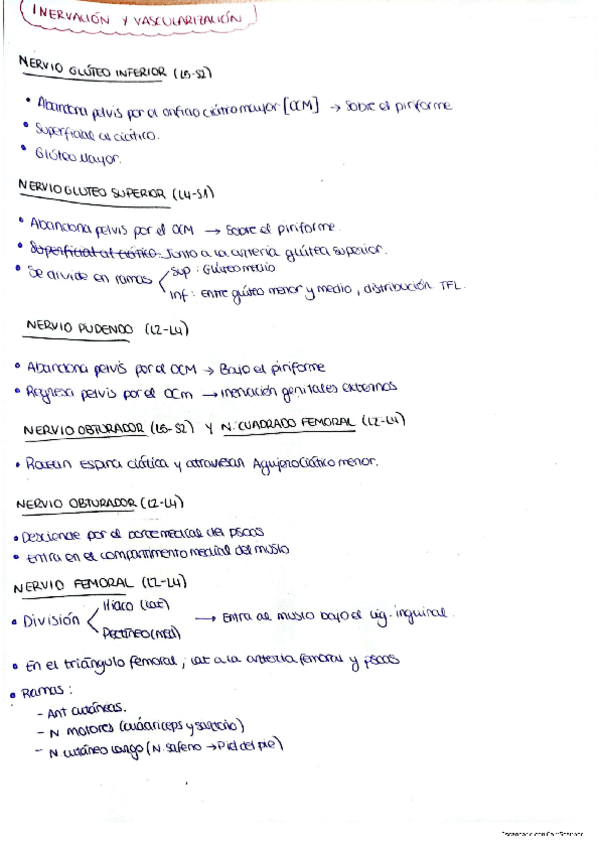 INERVACIÓN Y VASCULARIZACIÓN
NERVIO GLÚTEO INFERIOR (L5-S2)
• Abandona pelvis por el orificio ciático mayor [OCM] → Sobre el piriforme
• Superficial al ciático.
• Glúteo Mayor.
NERVIO GLUTEO SUPERIOR (L4-S1)
• Abandona pelvis por el OCM → Sobre el piriforme.
• Superficial al ciático Junto a la arteria glútea superior.
• Se divide en ramas
sup: Glúteo medio
inf: entre glúteo menor y medio, distribución TFL.
NERVIO PUDENDO (L2-L4)
• Abandona pelvis por el OCM → Bajo el piriforme
• Regresa pelvis por el OCm → inervación genitales externos
NERVIO OBTURADOR (L5-S2) Y N. CUADRADO FEMORAL (L2-L4)
• Rodean espina ciática y atraviesan Agujero Ciático menor.
NERVIO OBTURADOR (L2-L4)
• Desciende por el borde medial del psoas
• Entra en el compartimento medial del muslo
NERVIO FEMORAL (L2-L4)
• División
Iliaco (lat)
Pectíneo (med)
→ Entra al muslo bajo el lig. inguinal.
• En el triángulo femoral, lat a la arteria femoral y psoas
• Ramas:
- Ant cutáneas.
- N motores (cuádriceps y sartorio)
- N cutáneo largo (N. safeno → Piel del pie)
Escaneado con CamScanner